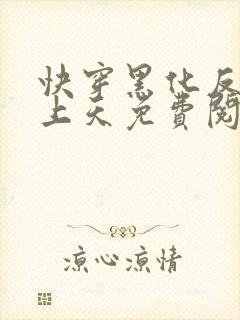 快穿黑化反
上天免费阅
凉心凉情